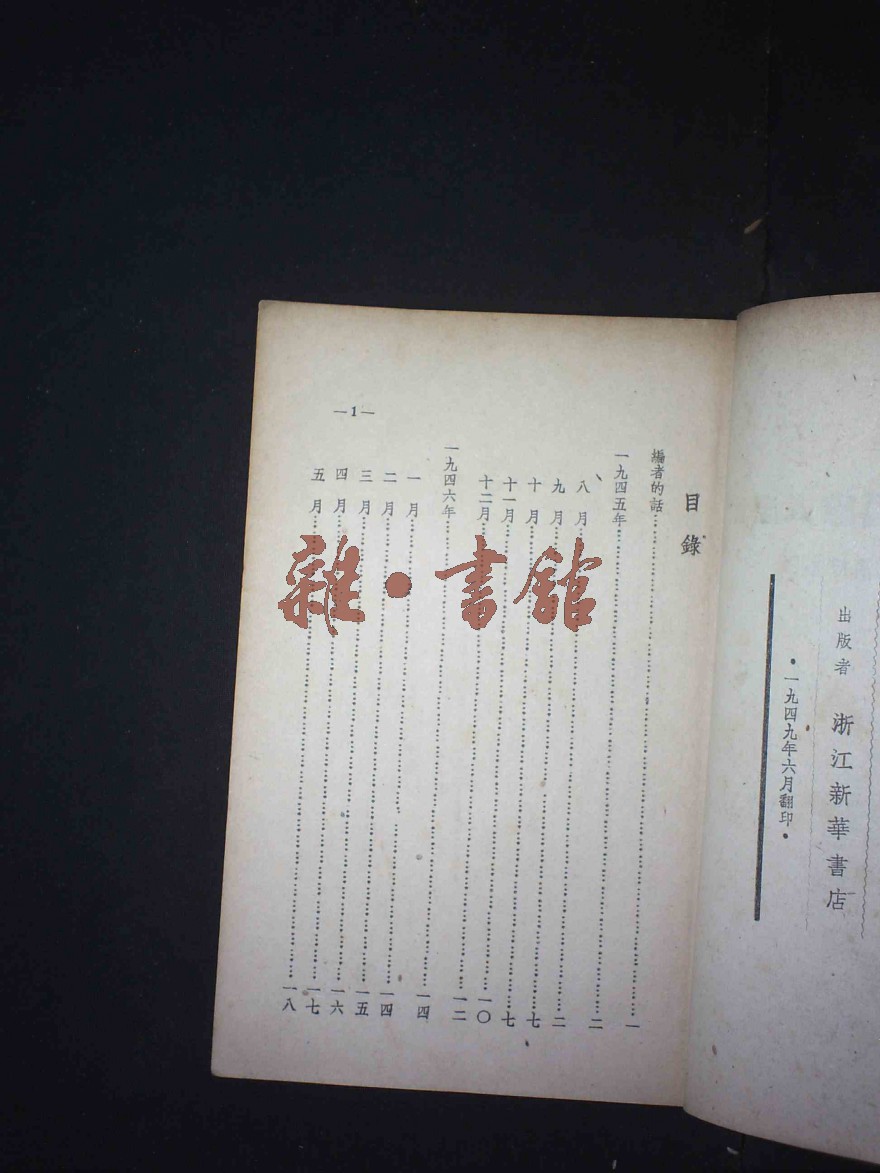 出版者 浙江新華書店
•一九四九年六月翻印•
目錄
編者的話……一
一九四五年……二
八月……二
九月……七
十月……七
十一月……一〇
十二月……一二
一九四六年……一四
一月……一四
二月……一五
三月……一六
四月……一七
五月……一八
—1—
雜•書館